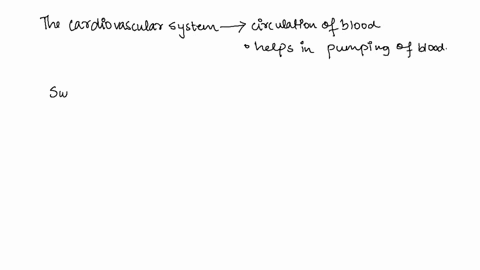 The cardiovascular system ⟶ circulation of blood
• helps in pumping of blood.
Sw